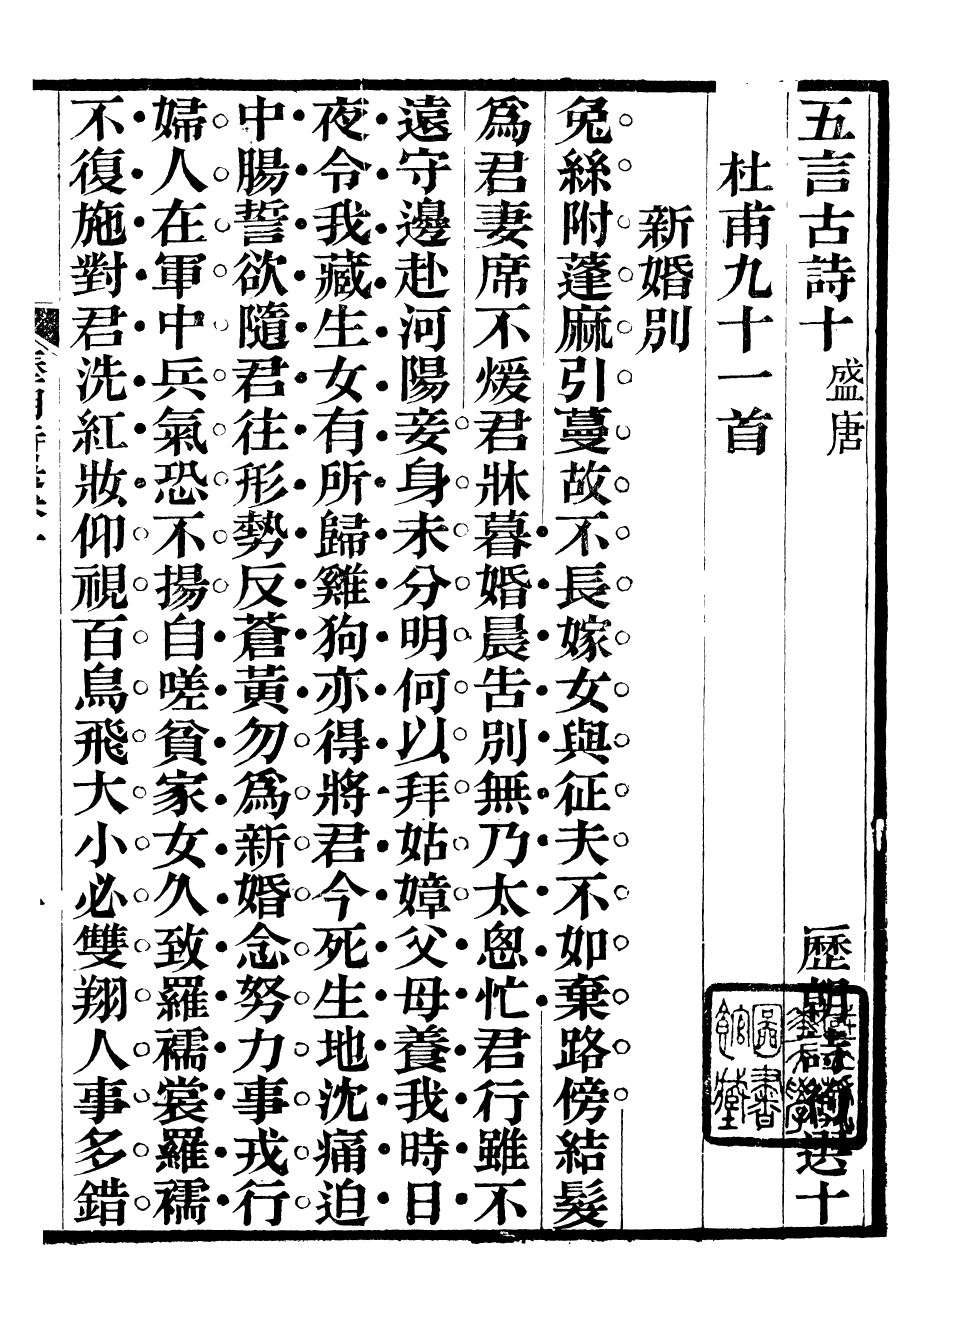 五言古詩十 盛唐 歷朝詩選十
杜甫九十一首
新婚別
兔絲附蓬麻引蔓故不長嫁女與征夫不如棄路傍結髮
爲君妻席不煖君牀暮婚晨告別無乃太悤忙君行雖不
遠守邊赴河陽妾身未分明何以拜姑嫜父母養我時日
夜令我藏生女有所歸雞狗亦得將君今死生地沈痛迫
中腸誓欲隨君往形勢反蒼黃勿爲新婚念努力事戎行
婦人在軍中兵氣恐不揚自嗟貧家女久致羅襦裳羅襦
不復施對君洗紅妝仰視百鳥飛大小必雙翔人事多錯